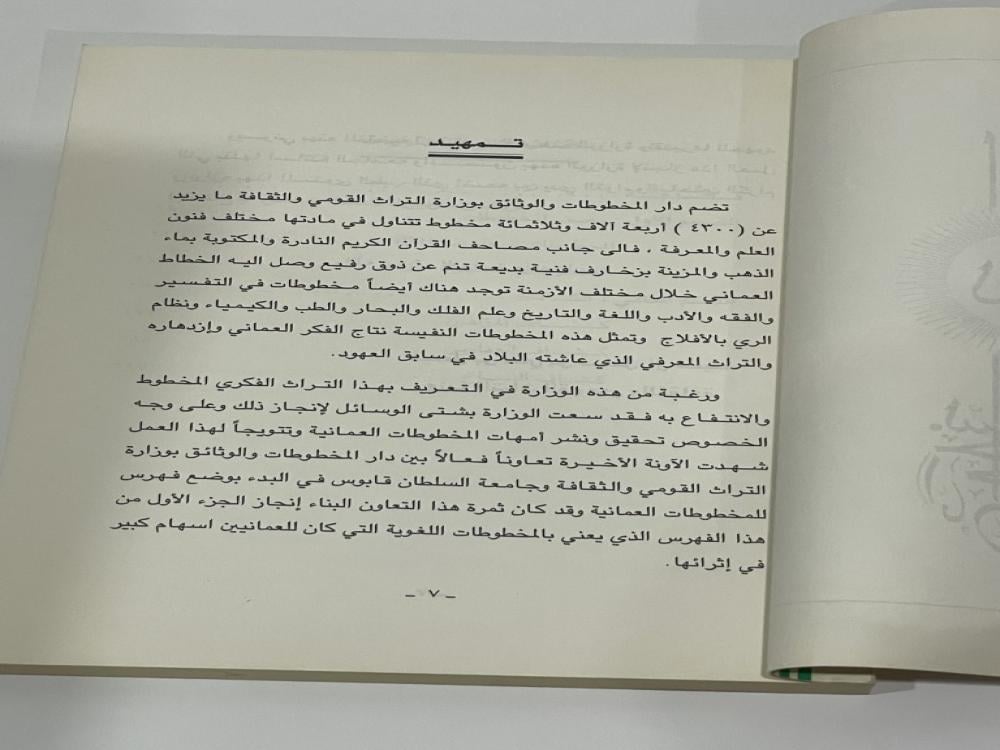 تمهيد
تضم دار المخطوطات والوثائق بوزارة التراث القومي والثقافة ما يزيد
عن (٤٣٠٠ ) أربعة آلاف وثلاثمائة مخطوط تتناول في مادتها مختلف فنون
العلم والمعرفة ، فالى جانب مصاحف القرآن الكريم النادرة والمكتوبة بماء
الذهب والمزينة بزخارف فنية بديعة تنم عن ذوق رفيع وصل اليه الخطاط
العماني خلال مختلف الأزمنة توجد هناك أيضاً مخطوطات في التفسير
والفقه والأدب واللغة والتاريخ وعلم الفلك والبحار والطب والكيمياء ونظام
الري بالأفلاج وتمثل هذه المخطوطات النفيسة نتاج الفكر العماني وإزدهاره
والتراث المعرفي الذي عاشته البلاد في سابق العهود.
ورغبة من هذه الوزارة في التعريف بهذا التراث الفكري المخطوط
والانتفاع به فقد سعت الوزارة بشتى الوسائل لإنجاز ذلك وعلى وجه
الخصوص تحقيق ونشر أمهات المخطوطات العمانية وتتويجاً لهذا العمل
شهدت الآونة الأخيرة تعاوناً فعالاً بين دار المخطوطات والوثائق بوزارة
التراث القومي والثقافة وجامعة السلطان قابوس في البدء بوضع فهرس
للمخطوطات العمانية وقد كان ثمرة هذا التعاون البناء إنجاز الجزء الأول من
هذا الفهرس الذي يعني بالمخطوطات اللغوية التي كان للعمانيين اسهام كبير
في إثرائها.
ـ ٧ ـ